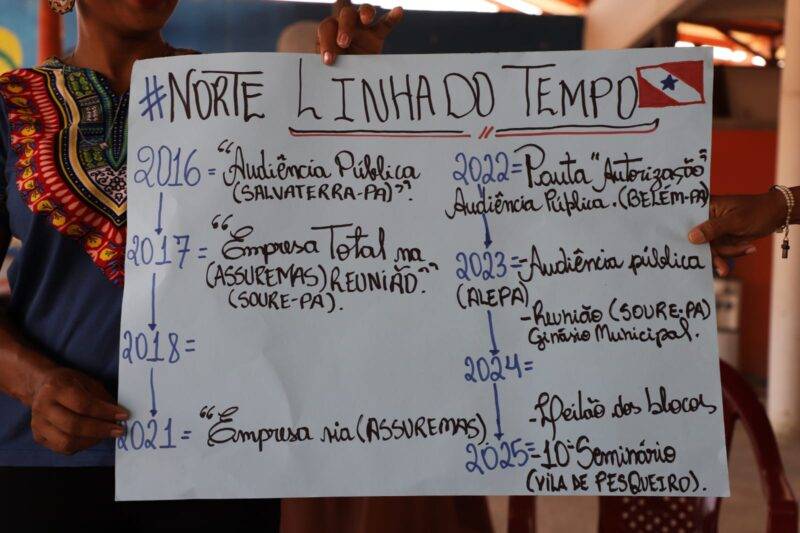 #NORTE LINHA DO TEMPO
2016= "Audiência Pública
(SALVATERRA-PA)".
2017= "Empresa Total na
(ASSUREMAS) REUNIÃO."
(SOURE-PA).
2018=
2021= "Empresa via (ASSUREMAS)
2022= Pauta "Autorização"
Audiência Pública. (BELÉM-PA)
2023= -Audiência pública
(ALEPA)
-Reunião (SOURE-PA)
Ginásio Municipal.
2024=
-Leilão dos blocos
2025= -10º Seminário
(VILA DE PESQUEIRO).